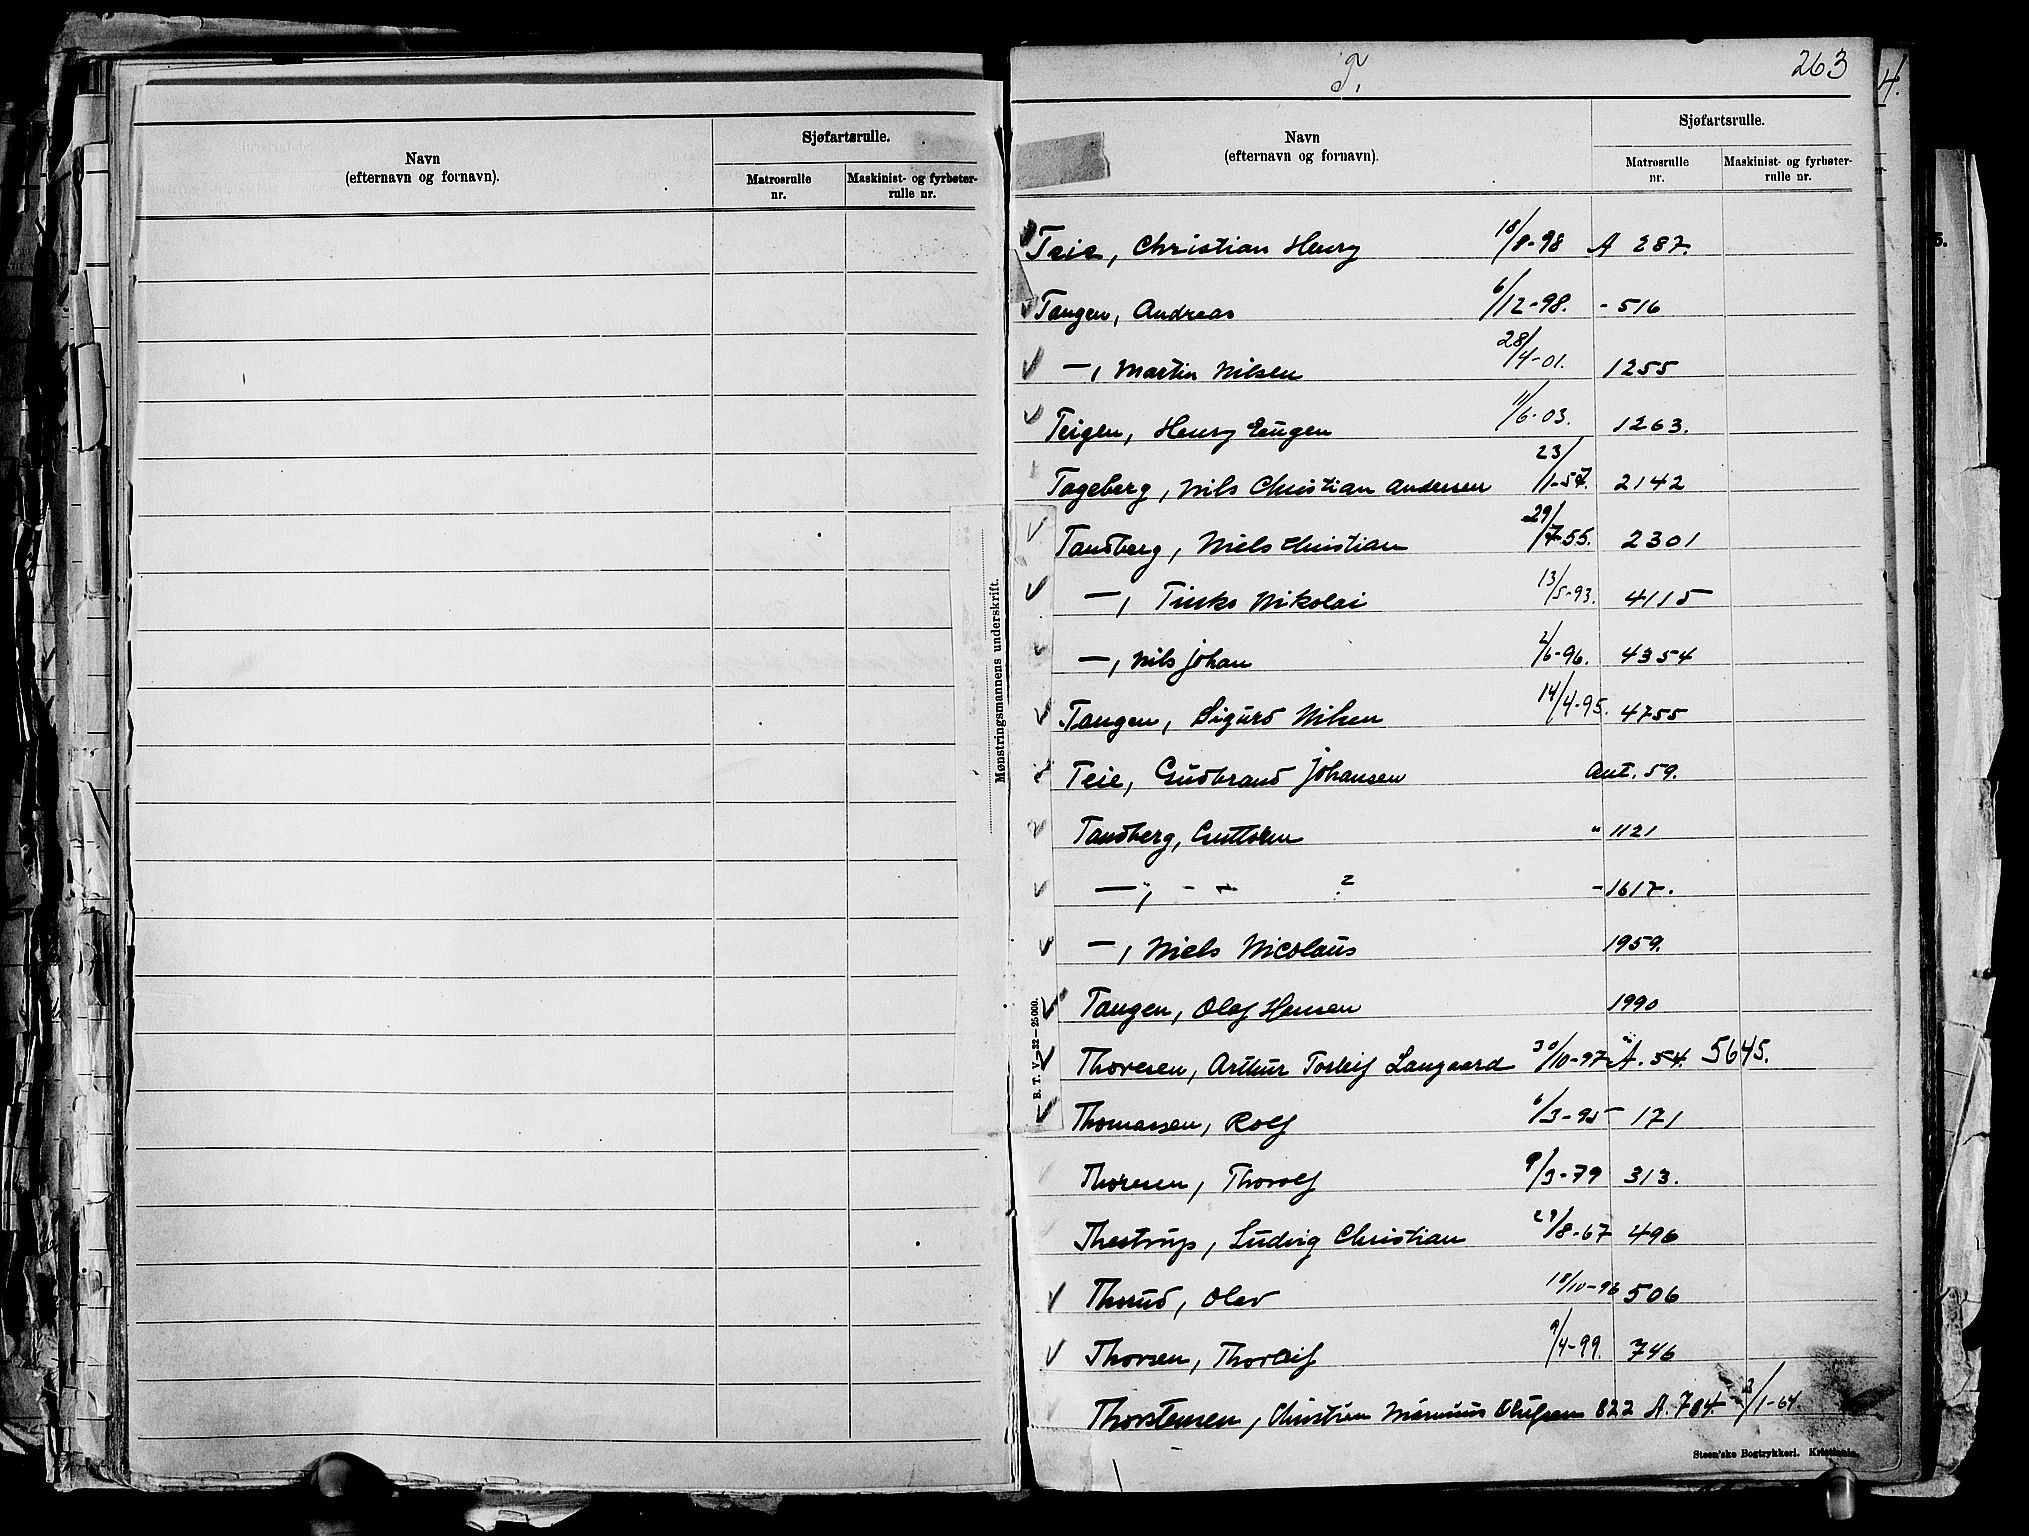 Navn
(efternavn og fornavn).
Sjøfartsrulle.
Matrosrulle
nr.
Maskinist- og fyrbøter-
rulle nr.
Mønstringsmannens underskrift.
B. T. V. — 32 — 25000.
T.
263
4.
5.
Navn
(efternavn og fornavn).
Sjøfartsrulle.
Matrosrulle
nr.
Maskinist- og fyrbøter-
rulle nr.
Teie, Christian Henry 18/8-98 A 287.
Tangen, Andreas 6/12-98. - 516
—, Martin Nilsen 28/4-01. 1255
Teigen, Henry Eugen 11/6-03. 1263.
Tageberg, Nils Christian Andersen 23/1-57. 2142
Tandberg, Niels Christian 29/7-55. 2301
—, Nikolai 13/5-93. 4115
—, Nils Johan 2/6-96. 4354
Tangen, Sigurd Nilsen 14/4-95. 4755
Teie, Gudbrand Johansen Ant. 59.
Tandberg, Guttorm " 1121
—, - " - ? - 1617.
—, Niels Nicolaus 1959.
Tangen, Olaf Hansen 1990
Thoresen, Arthur Torleif Langaard 30/10-97 A. 54. 5645.
Thomassen, Rolf 6/3-95 - 171
Thoresen, Thorolf 9/3-79 313.
Thestrup, Ludvig Christian 29/8-67 496
Thorud, Olav 18/10-96 506
Thorsen, Thorleif 9/4-99. 746
Thorstensen, Christian Olufsen 822 A. 784. - 3/1-64
Steen'ske Bogtrykkeri. Kristiania.